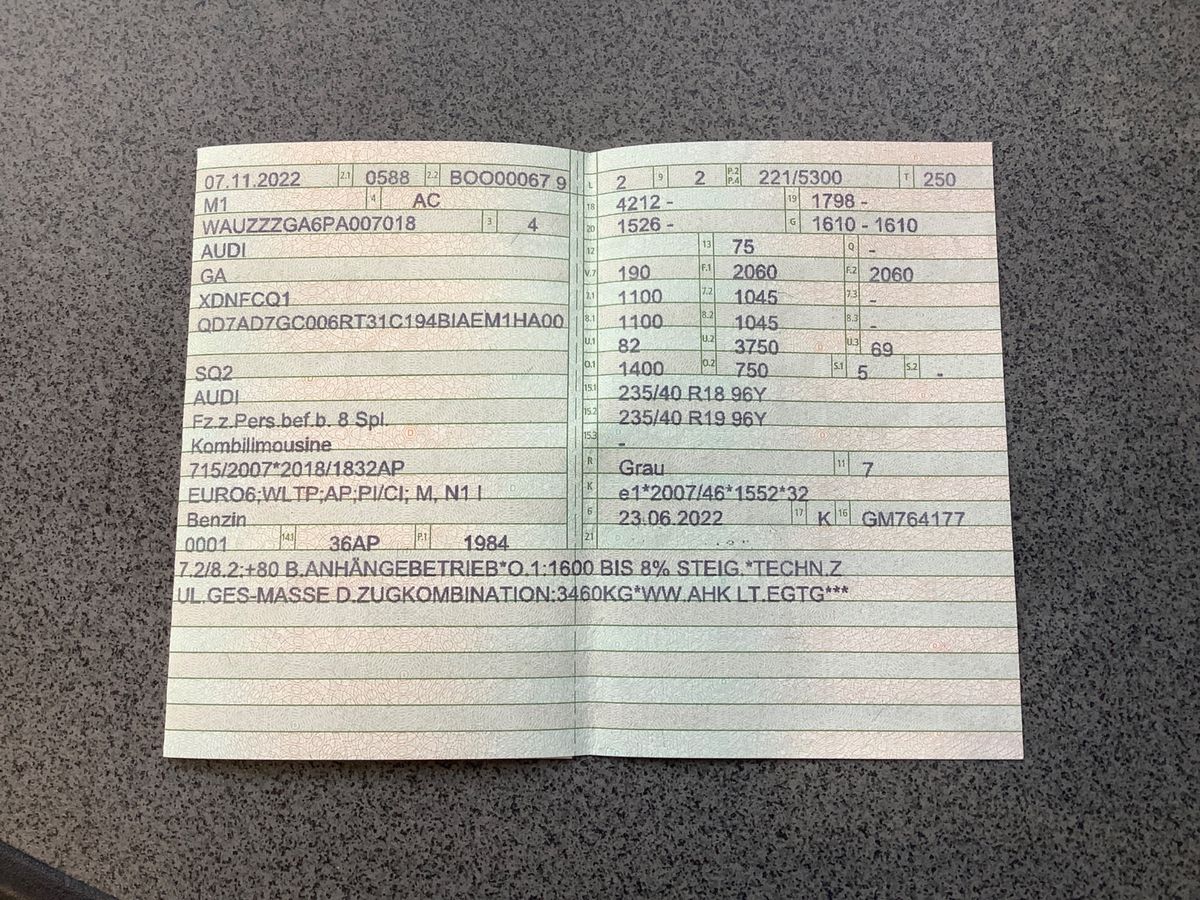 07.11.2022 2.1 0588 2.2 BOO00067 9
M1 4 AC
WAUZZZGA6PA007018 3 4
AUDI
GA
XDNFCQ1
QD7AD7GC006RT31C194BIAEM1HA00
SQ2
AUDI
Fz.z.Pers.bef.b. 8 Spl.
Kombilimousine
715/2007*2018/1832AP
EURO6;WLTP;AP;PI/CI; M, N1 I
Benzin
0001 14.1 36AP P.1 1984
L 2 9 2 P.2 P.4 221/5300 T 250
18 4212 - 19 1798 -
20 1526 - G 1610 - 1610
12 13 75 Q -
V.7 190 F.1 2060 F.2 2060
7.1 1100 7.2 1045 7.3 -
8.1 1100 8.2 1045 8.3 -
U.1 82 U.2 3750 U.3 69
O.1 1400 O.2 750 S.1 5 S.2 -
15.1 235/40 R18 96Y
15.2 235/40 R19 96Y
15.3 -
R Grau 11 7
K e1*2007/46*1552*32
6 23.06.2022 17 K 16 GM764177
21
7.2/8.2:+80 B.ANHÄNGEBETRIEB*O.1:1600 BIS 8% STEIG.*TECHN.Z
UL.GES-MASSE D.ZUGKOMBINATION:3460KG*WW.AHK LT.EGTG***